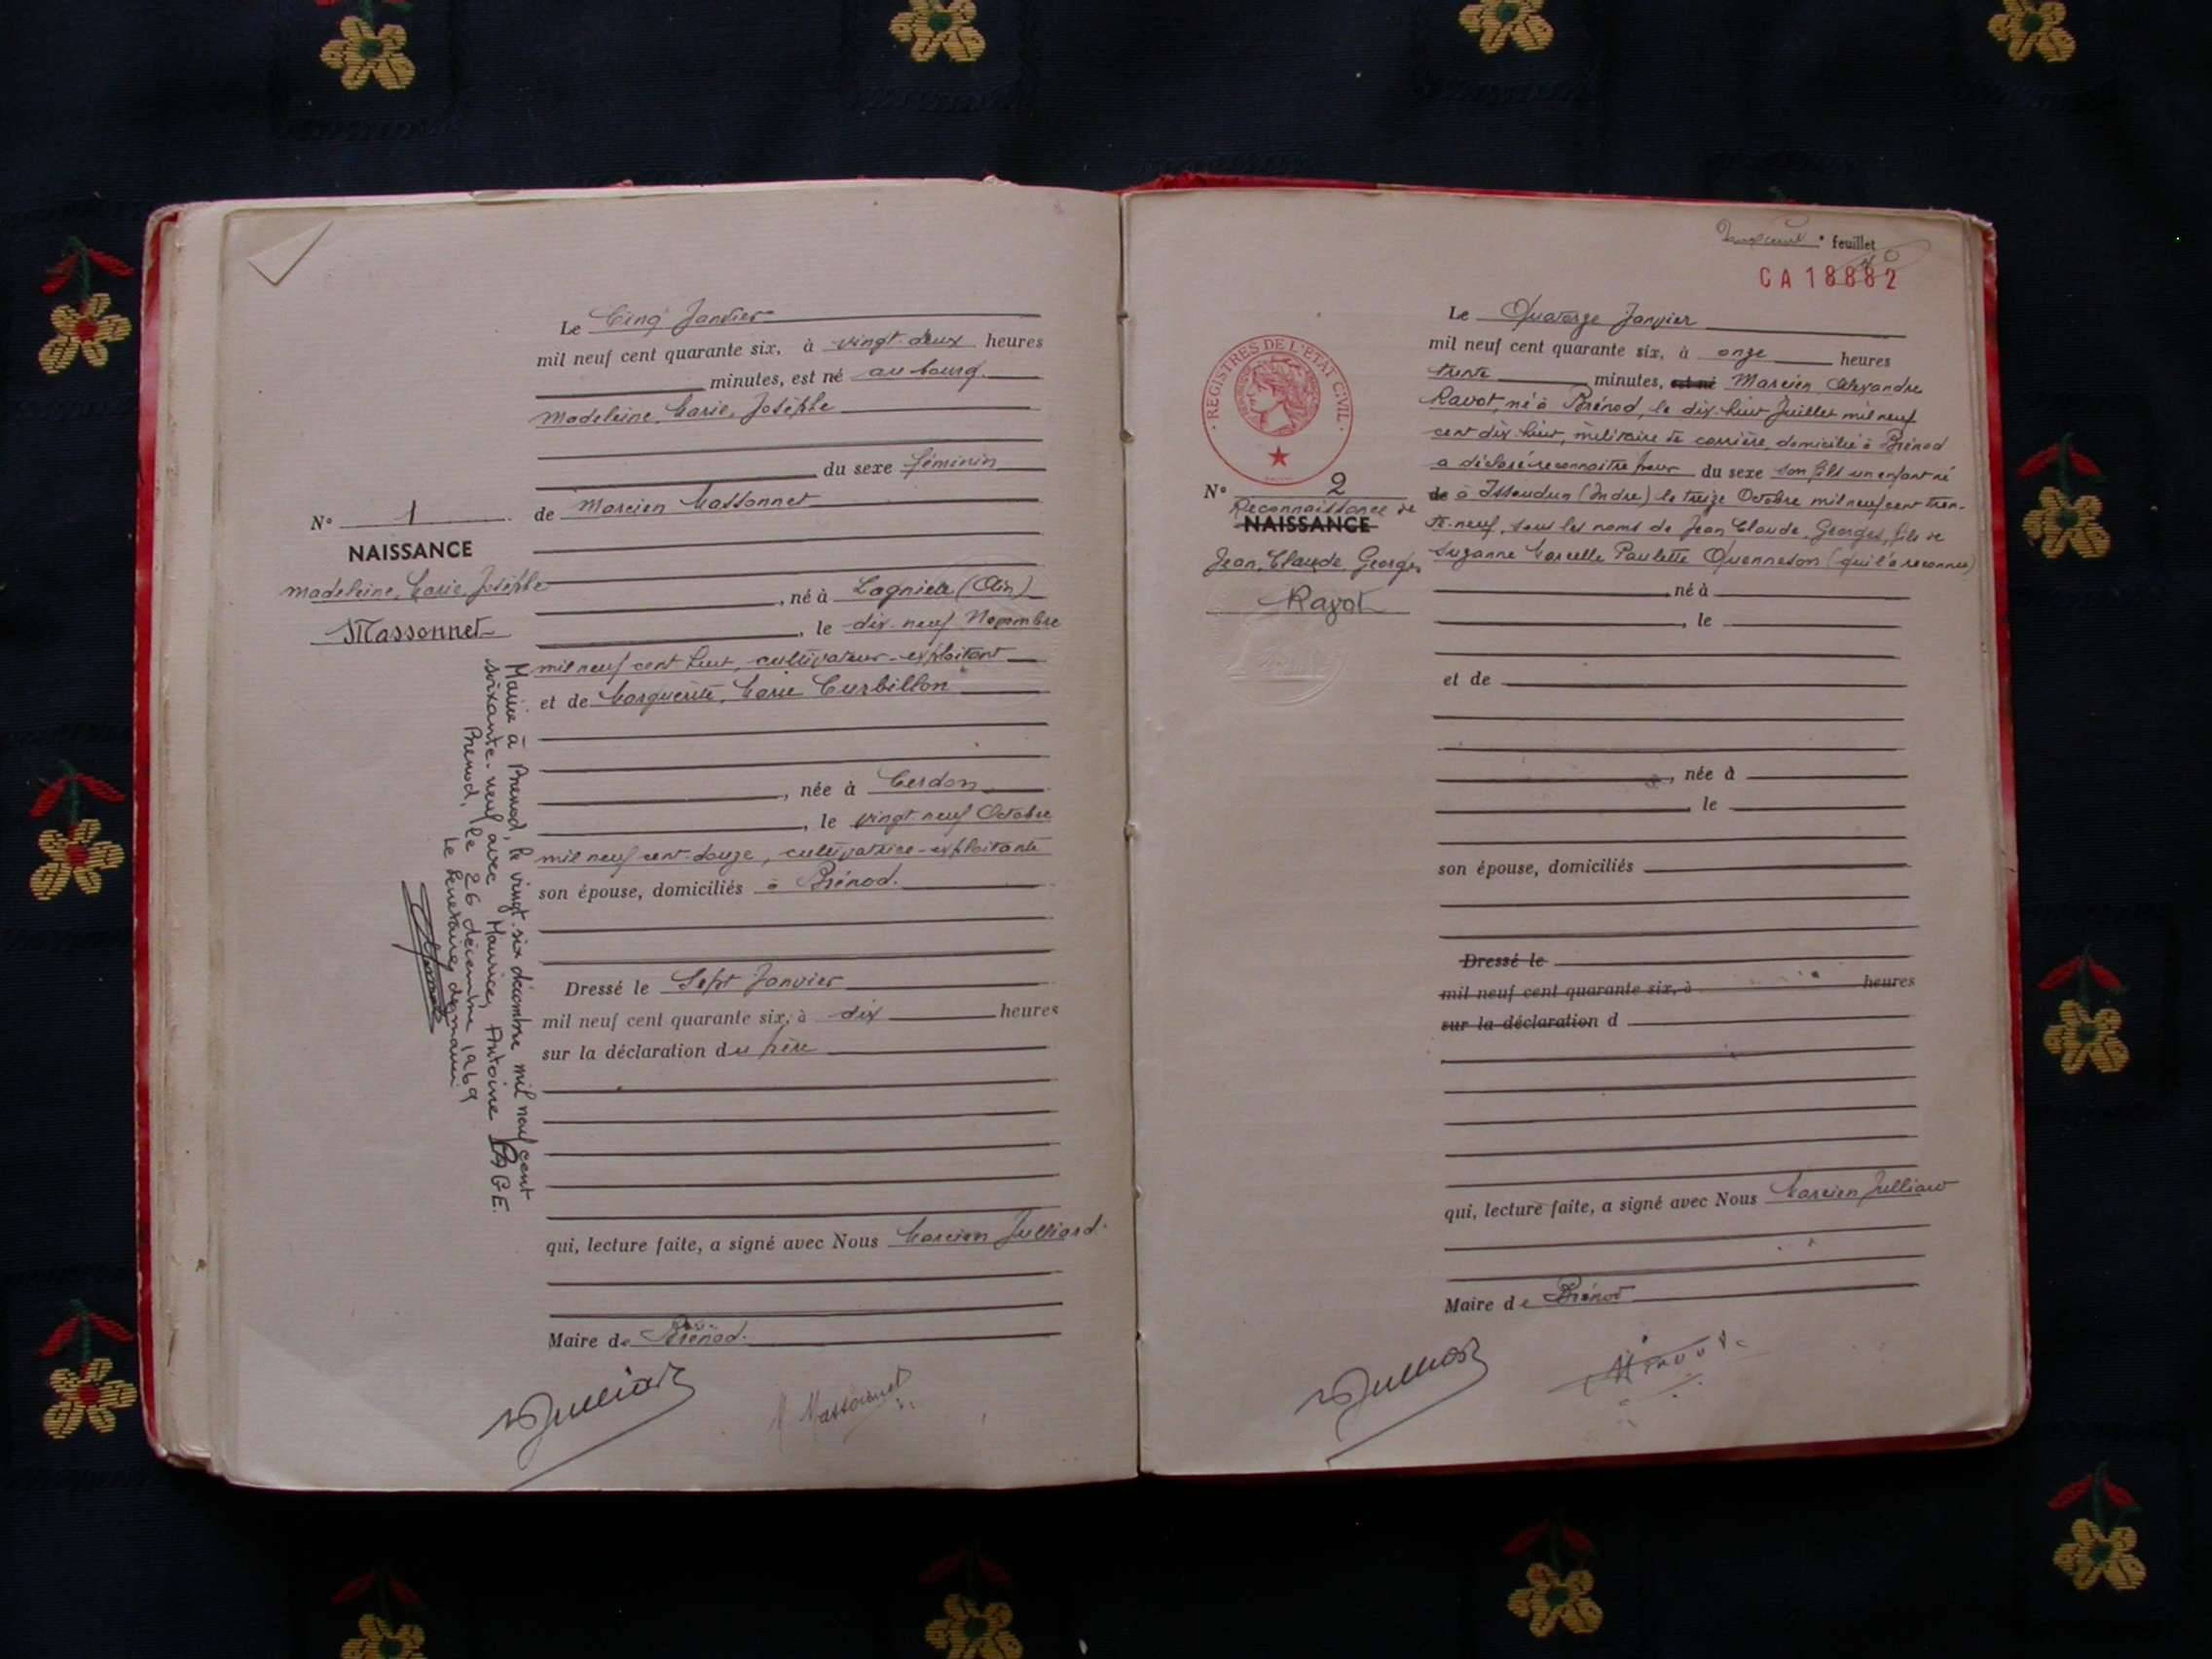 Le Cinq Janvier
mil neuf cent quarante six, à vingt deux heures
minutes, est né au bourg
Madeleine, Marie, Josèphe
du sexe féminin
N° 1
de Marcien Massonnet
NAISSANCE
Madeleine, Marie, Josèphe
Massonnet
, né à Lagnieu (Ain)
, le dix-neuf Novembre
mil neuf cent huit, cultivateur-exploitant
et de Marguerite, Marie Curbillon
, née à Cerdon
, le vingt neuf Octobre
mil neuf cent douze, cultivatrice-exploitante
son épouse, domiciliés à Brénod.
Dressé le Sept Janvier
mil neuf cent quarante six, à dix heures
sur la déclaration du père
qui, lecture faite, a signé avec Nous Marcien Julliard.
Maire de Brénod.
Julliard
M Massonnet
Mariée à Brenod, le vingt-six décembre mil neuf cent
soixante-neuf avec Maurice, Antoine PAGE.
Brenod, le 26 décembre 1969
Le Secrétaire de mairie
feuillet
CA 18882
REGISTRES DE L'ÉTAT CIVIL
Le Quatorze Janvier
mil neuf cent quarante six, à onze heures
trente minutes, est né Marcien, Alexandre
Ravot, né à Brénod, le dix-huit Juillet mil neuf
cent dix-huit, militaire de carrière, domicilié à Brénod
a déclaré reconnaitre pour du sexe son fils un enfant né
N° 2
de à Issoudun (Indre) le treize Octobre mil neuf cent tren-
Reconnaissance de
NAISSANCE
te-neuf, sous les noms de Jean, Claude, Georges, fils de
Jean, Claude, Georges
Suzanne Marcelle Paulette Quenneson (qui l'a reconnu)
Ravot
né à
, le
et de
, née à
, le
son épouse, domiciliés
Dressé le
mil neuf cent quarante six, à heures
sur la déclaration d
qui, lecture faite, a signé avec Nous Marcien Julliard
Maire de Brénod
Julliard